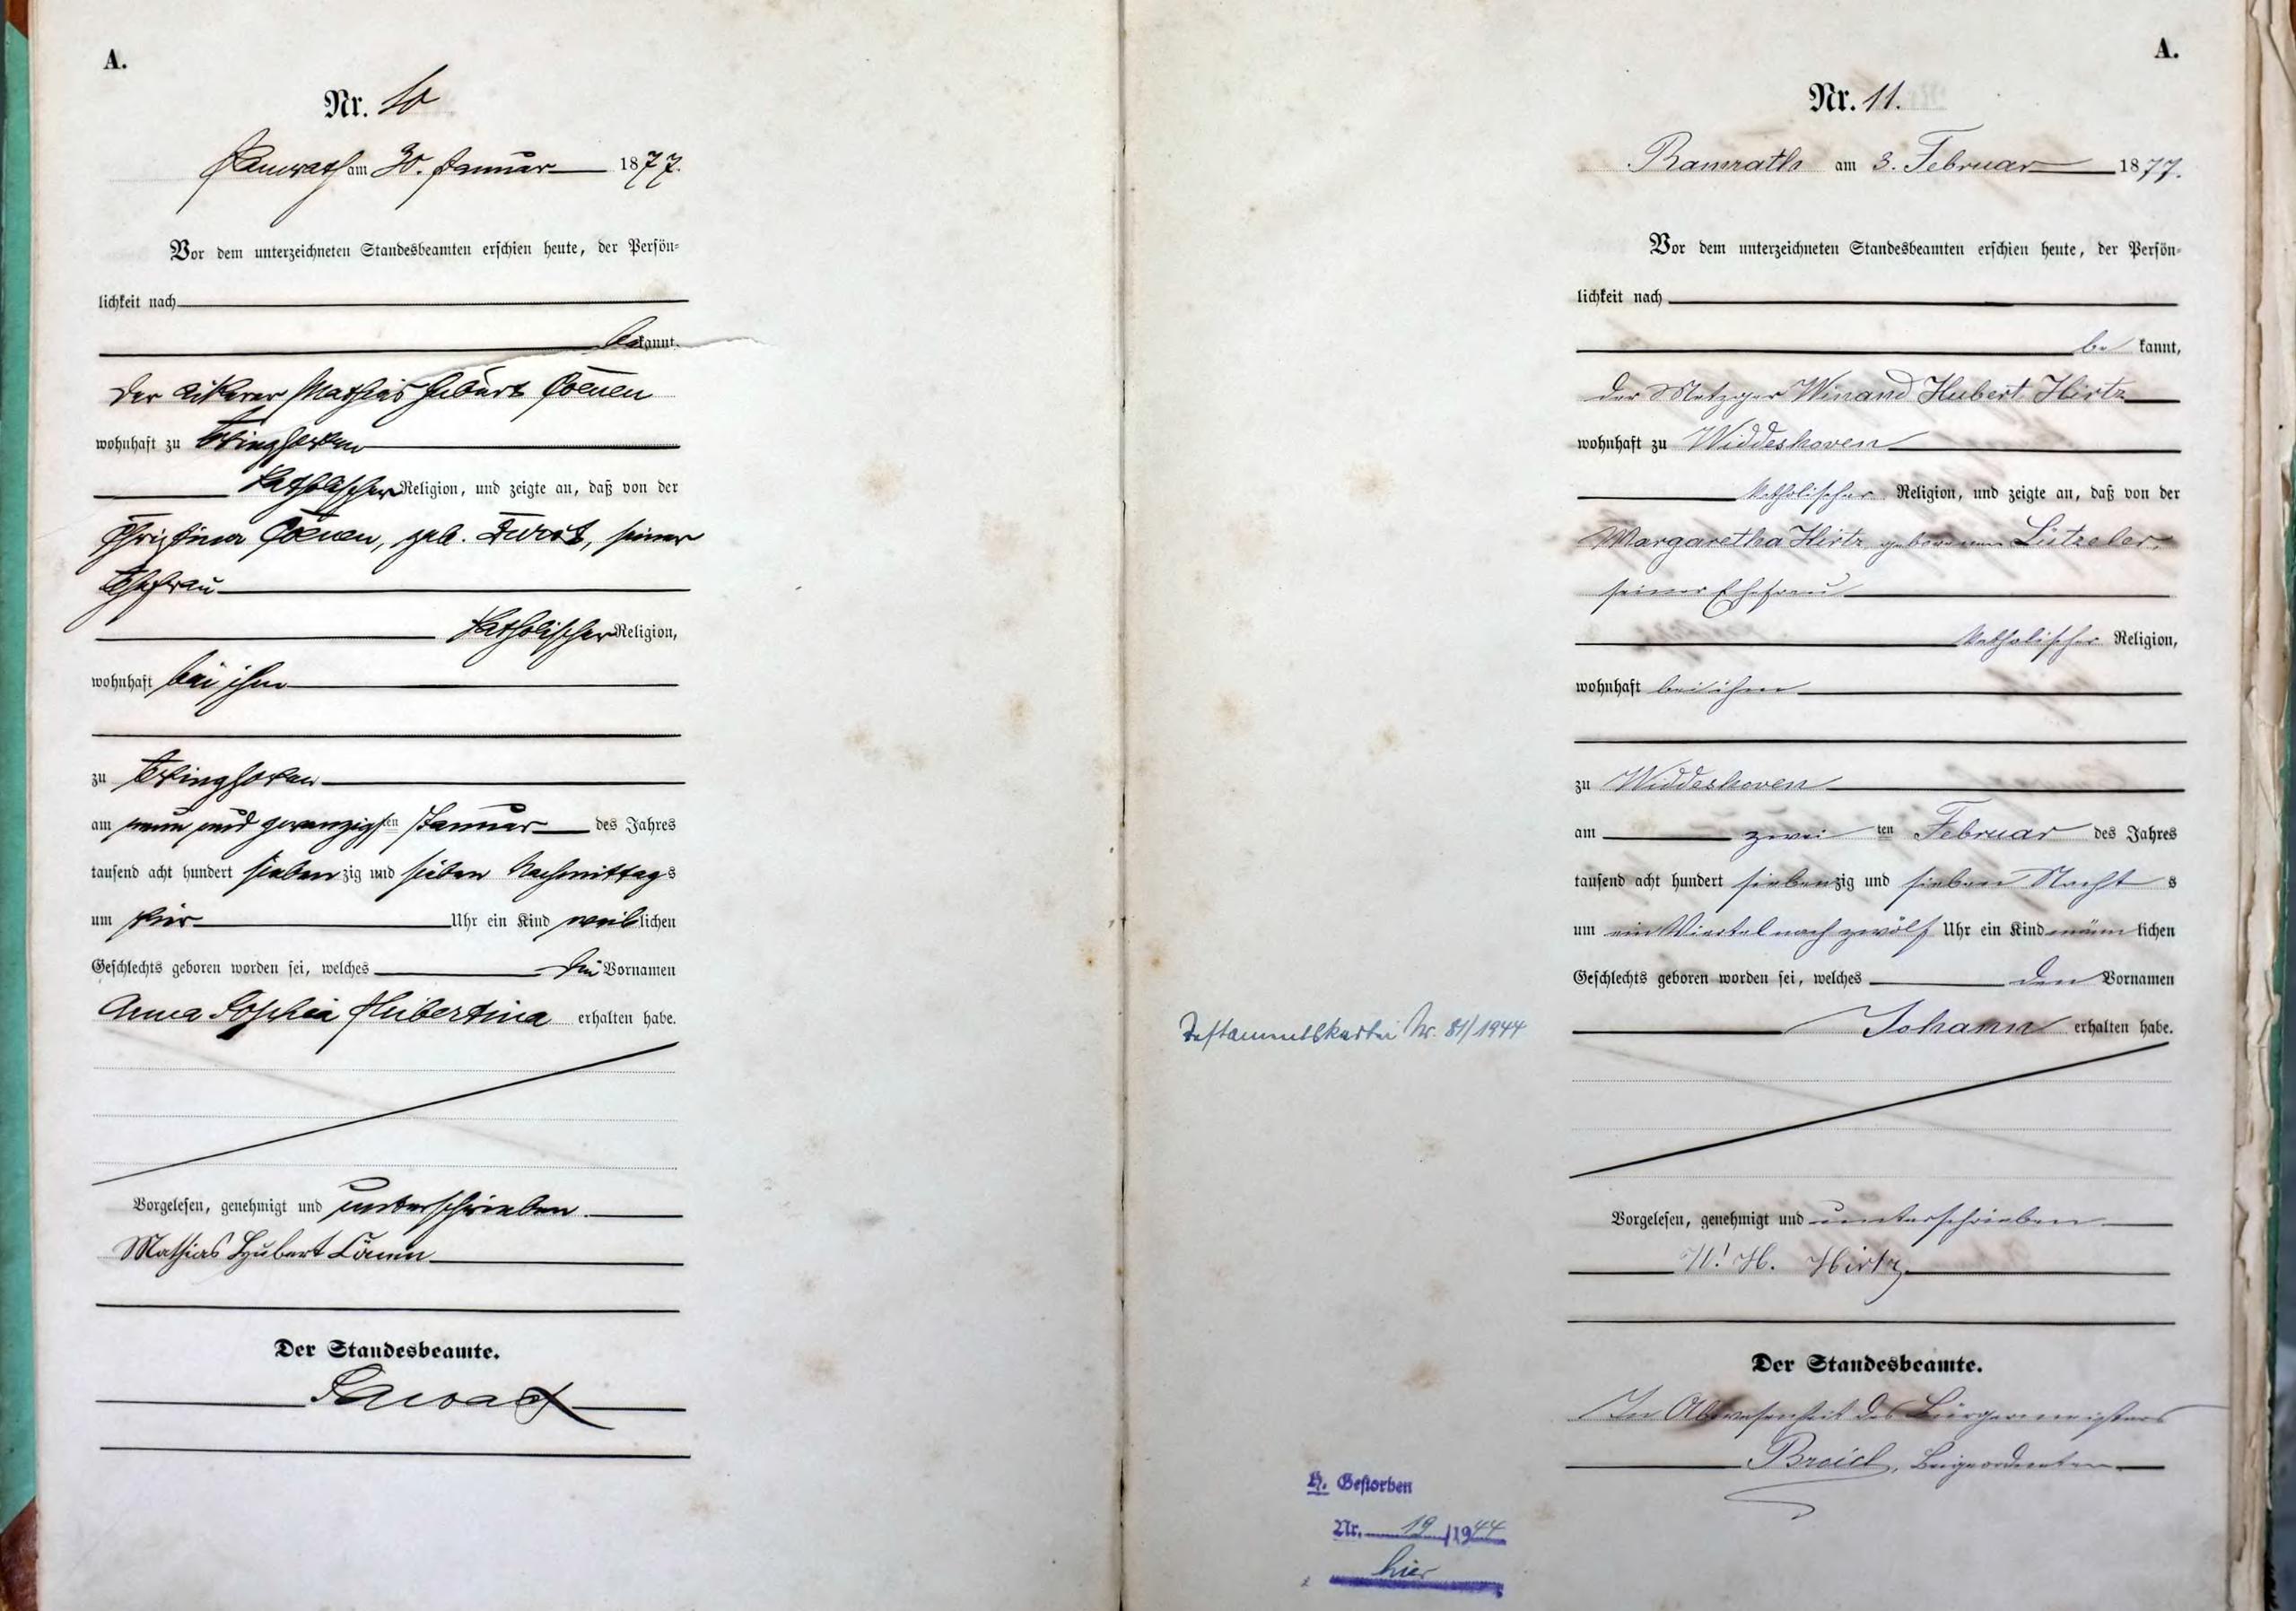 A.
Nr. 10
Ramrath am 30. Januar 1877.
Vor dem unterzeichneten Standesbeamten erschien heute, der Persön-
lichkeit nach
bekannt,
der Ackerer Mathias Hubert Coenen
wohnhaft zu Evinghoven
katholischer Religion, und zeigte an, daß von der
Christina Coenen, geb. seiner
Ehefrau
katholischer Religion,
wohnhaft bei ihm
zu Evinghoven
am neun und zwanzigsten Januar des Jahres
tausend acht hundert siebenzig und sieben Nachmittags
um vier Uhr ein Kind weiblichen
Geschlechts geboren worden sei, welches die Vornamen
Anna Sophia Hubertina erhalten habe.
Vorgelesen, genehmigt und unterschrieben.
Mathias Hubert Cönen
Der Standesbeamte.
A.
Nr. 11.
Ramrath am 3. Februar 1877.
Vor dem unterzeichneten Standesbeamten erschien heute, der Persön-
lichkeit nach
bekannt,
der Metzger Winand Hubert Hirtz
wohnhaft zu Widdeshoven
katholischer Religion, und zeigte an, daß von der
Margaretha Hirtz geborenen Lützeler,
seiner Ehefrau
katholischer Religion,
wohnhaft bei ihm
zu Widdeshoven
am zweiten Februar des Jahres
tausend acht hundert siebenzig und sieben Nachts
um ein Viertel nach zwölf Uhr ein Kind männlichen
Geschlechts geboren worden sei, welches den Vornamen
Johann erhalten habe.
Vorgelesen, genehmigt und unterschrieben
W. H. Hirtz
Der Standesbeamte.
In Abwesenheit des Bürgermeisters
Broich, Beigeordneter
Testamentskartei Nr. 81/1944
H. Gestorben
Nr. 19/1944
hier